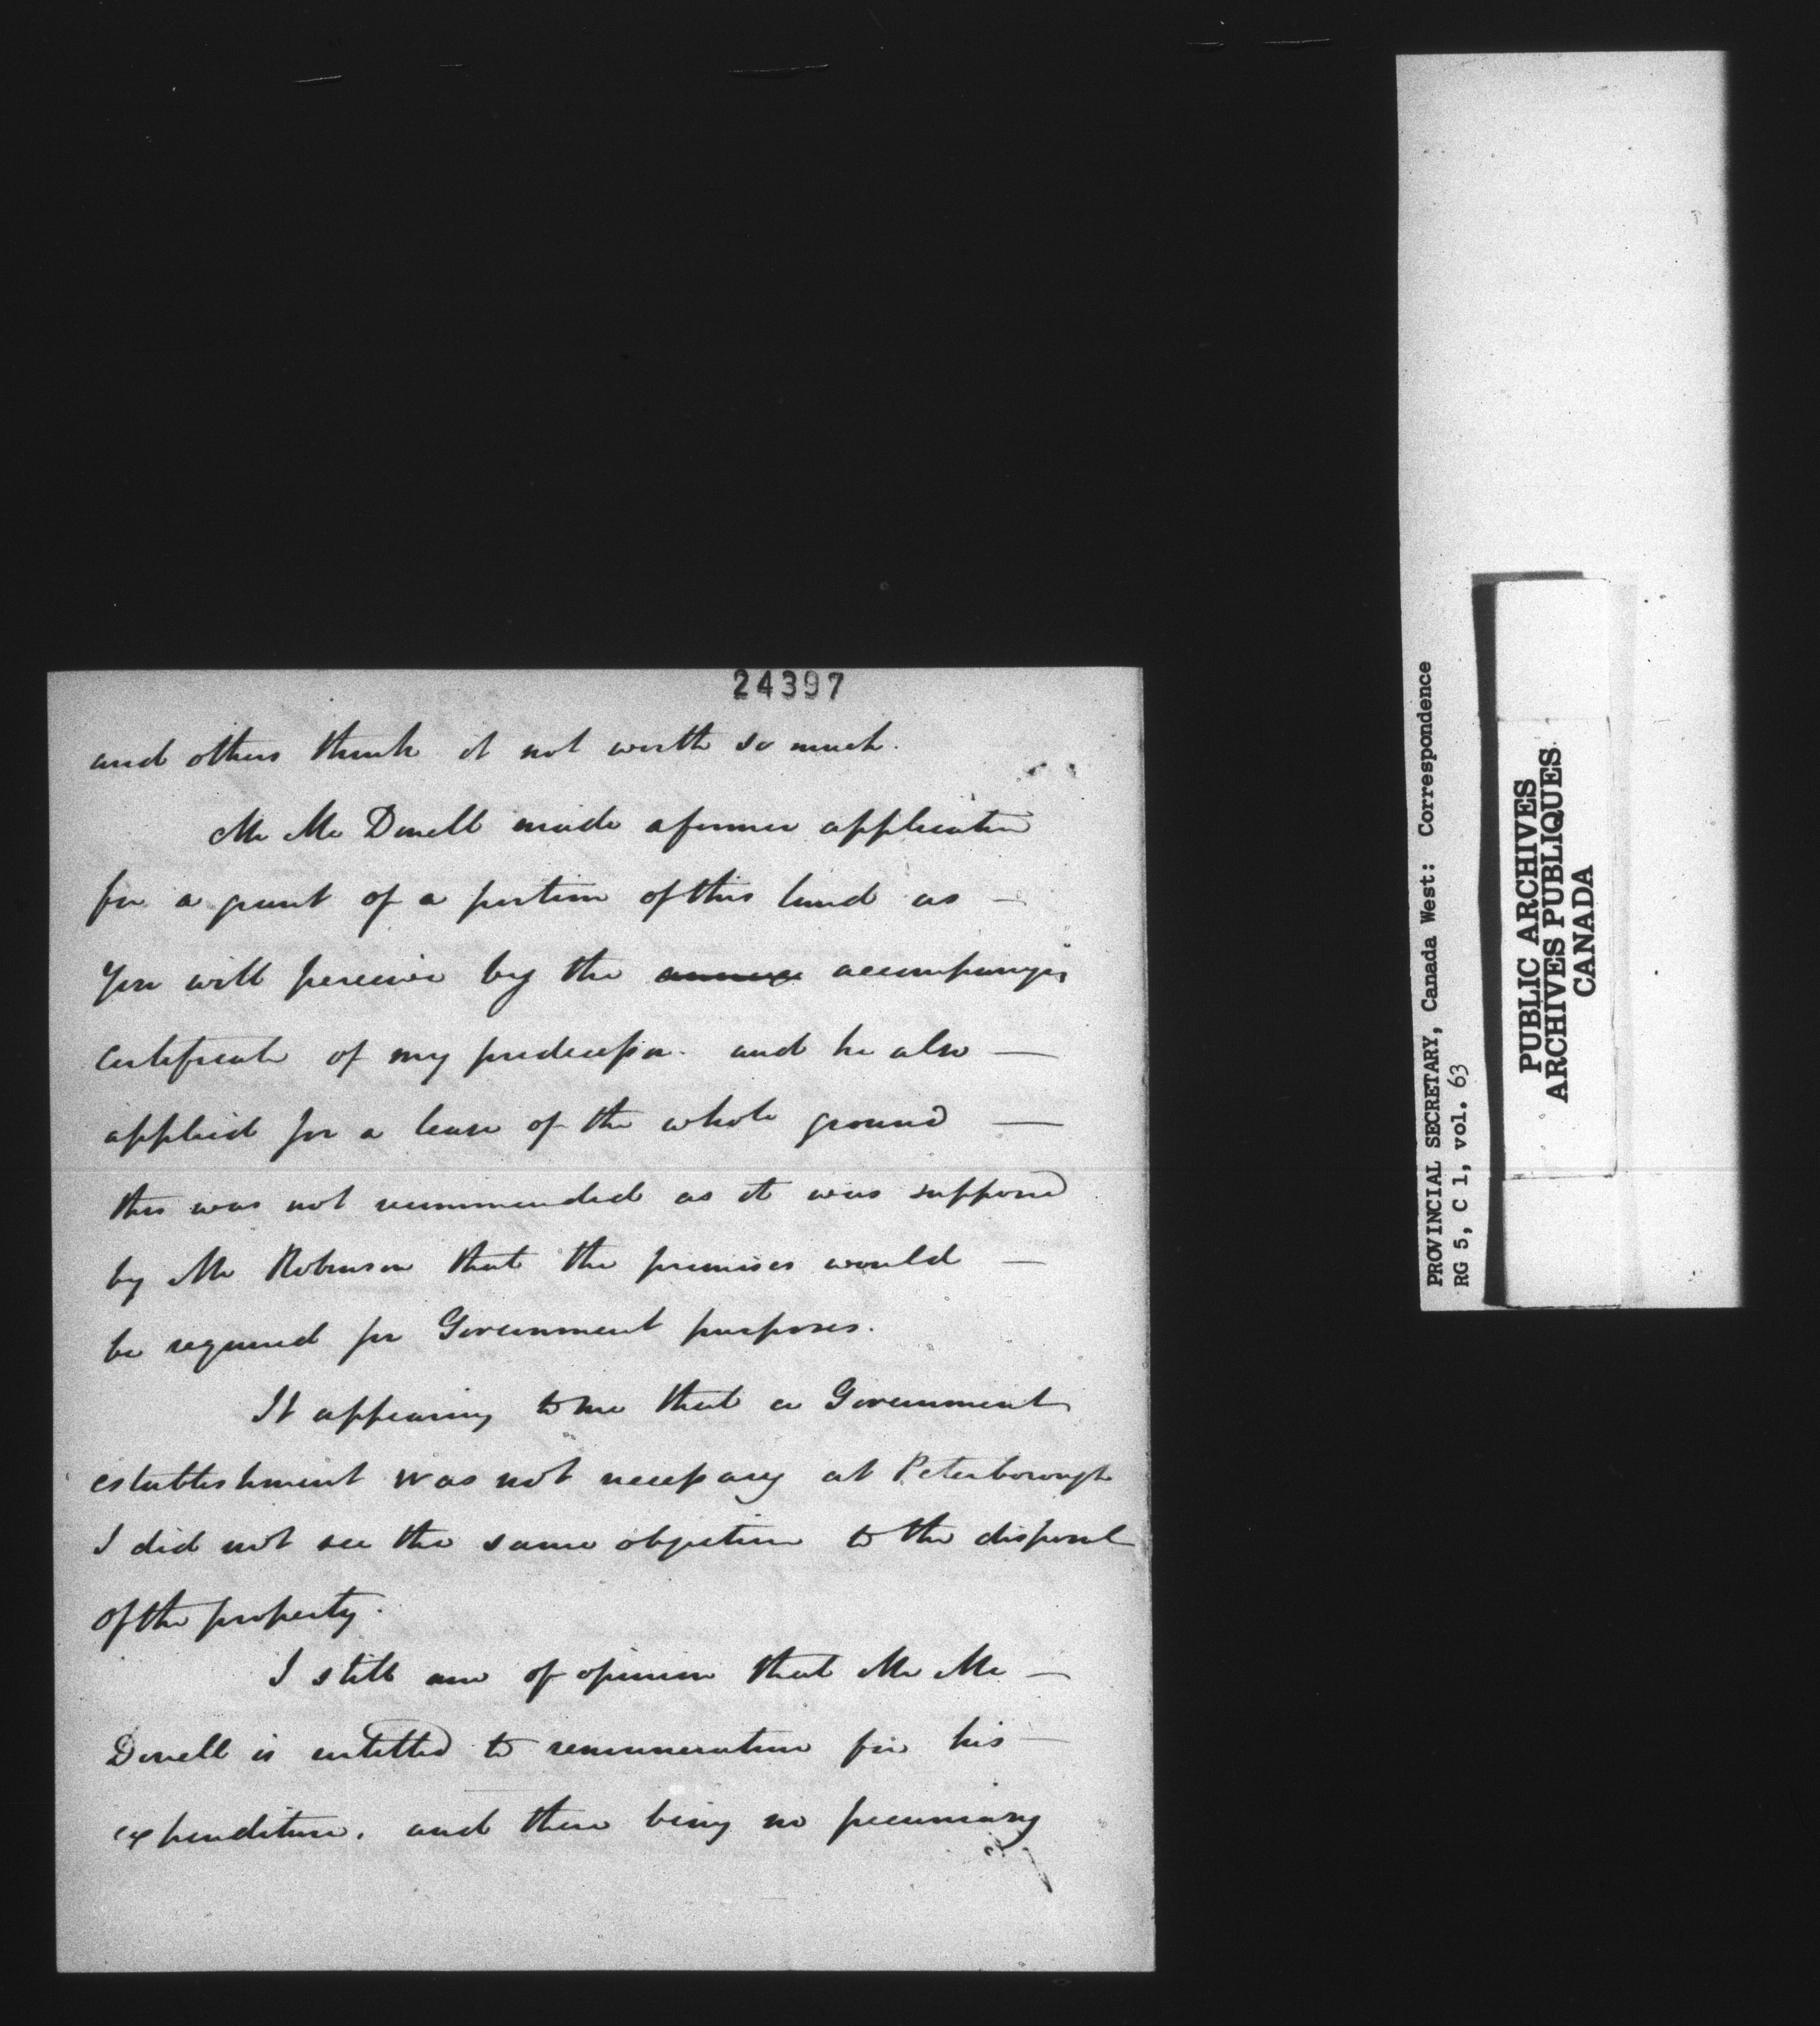 24397
and others think it not worth so much.
Mr Mc Donell made a former application
for a grant of a portion of this land as —
You will perceive by the annexe accompanying
Certificate of my predecessor. and he also —
applied for a lease of the whole ground —
this was not recommended as it was supposed
by Mr Robinson that the premises would —
be required for Government purposes.
It appearing to me that a Government
establishment was not necessary at Peterborough
I did not see the same objection to the disposal
of the property.
I still am of opinion that Mr Mc —
Donell is entitled to remuneration for his —
expenditure. and there being no pecuniary
PROVINCIAL SECRETARY, Canada West: Correspondence
RG 5, C 1, vol. 63
PUBLIC ARCHIVES
ARCHIVES PUBLIQUES
CANADA